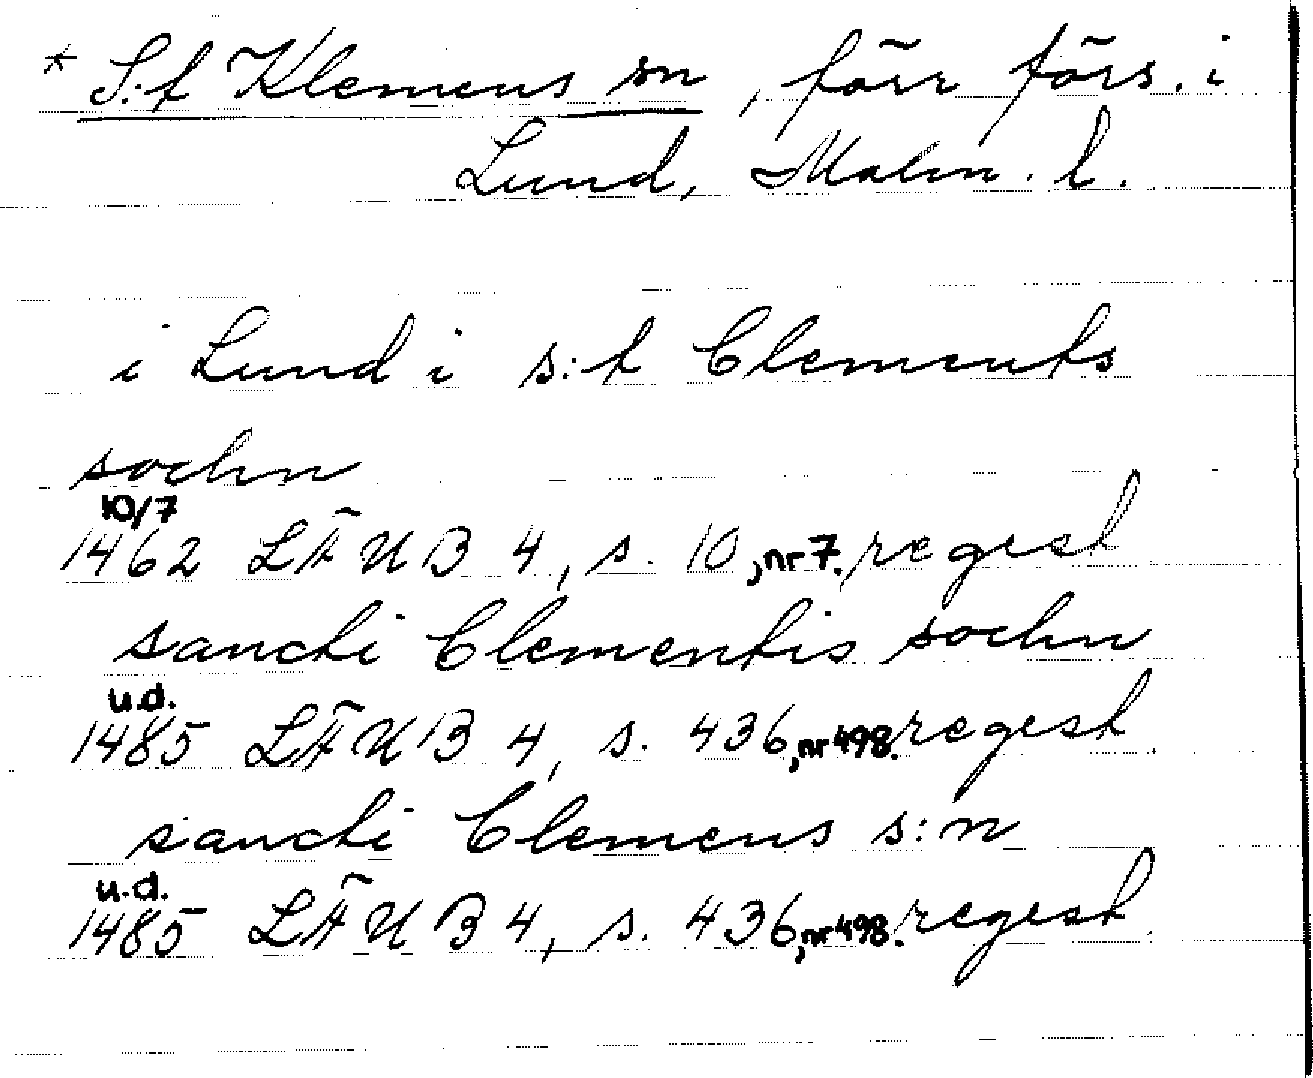 * S:t Klemens sn, förr förs. i
Lund, Malm. l.
i Lund i s:t Clements
sochn
10/7
1462 LÄUB 4, s. 10, nr 7. regest
sancti Clementis sochn
u.d.
1485 LÄUB 4, s. 436, nr 498. regest
sancti Clemens s:n
u.d.
1485 LÄUB 4, s. 436, nr 498. regest